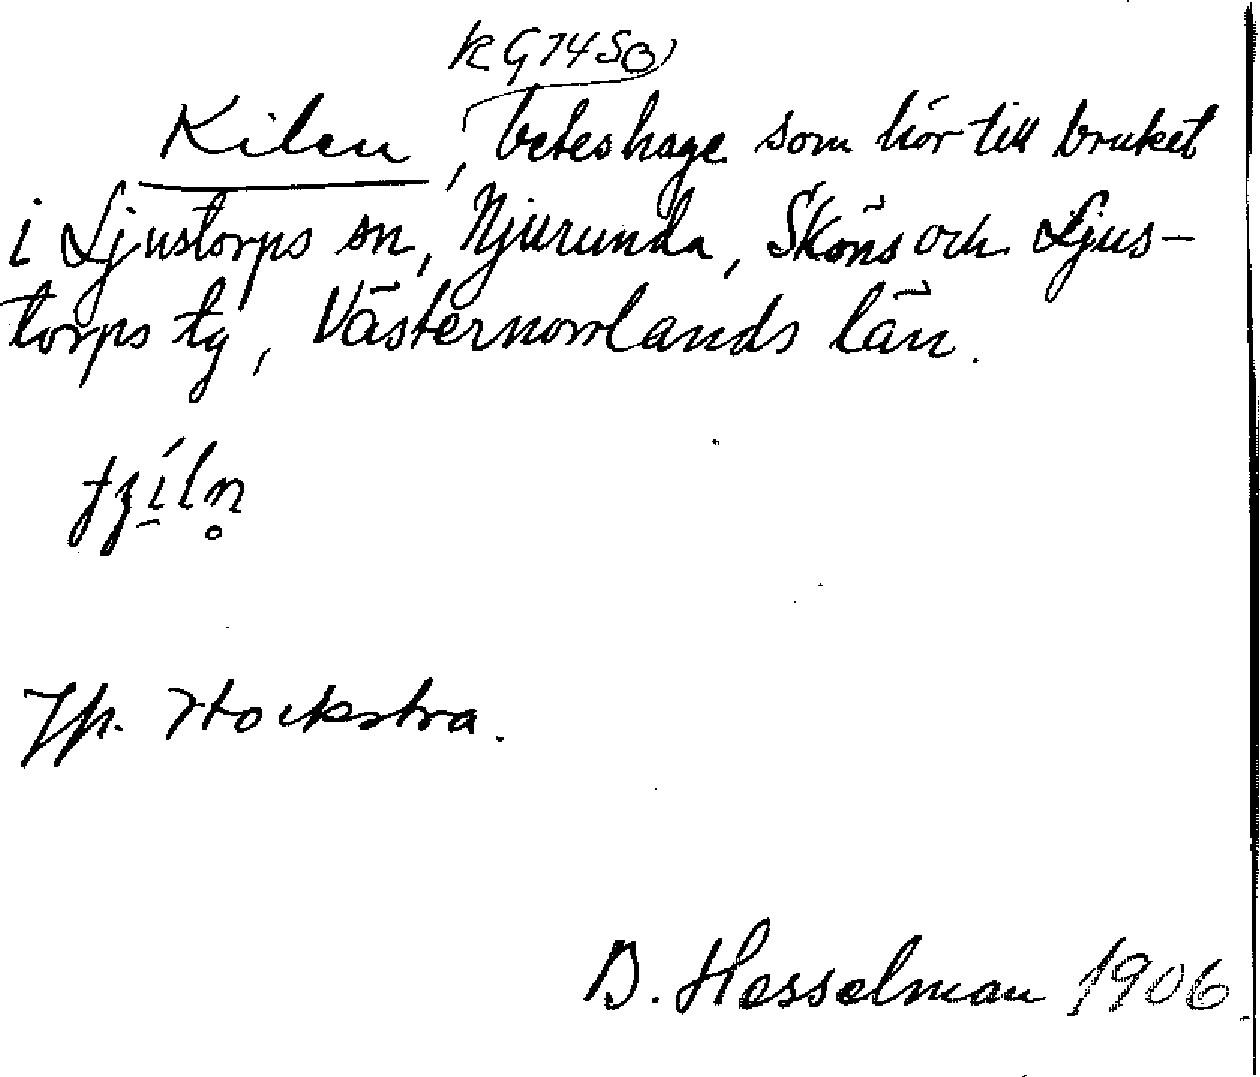 KG 74 SO
Kilen, beteshage som hör till bruket
i Ljustorps sn, Njurunda, Sköns och Ljus-
torps tg, Västernorrlands län.
Hp. Stockstra.
B. Hesselman 1906